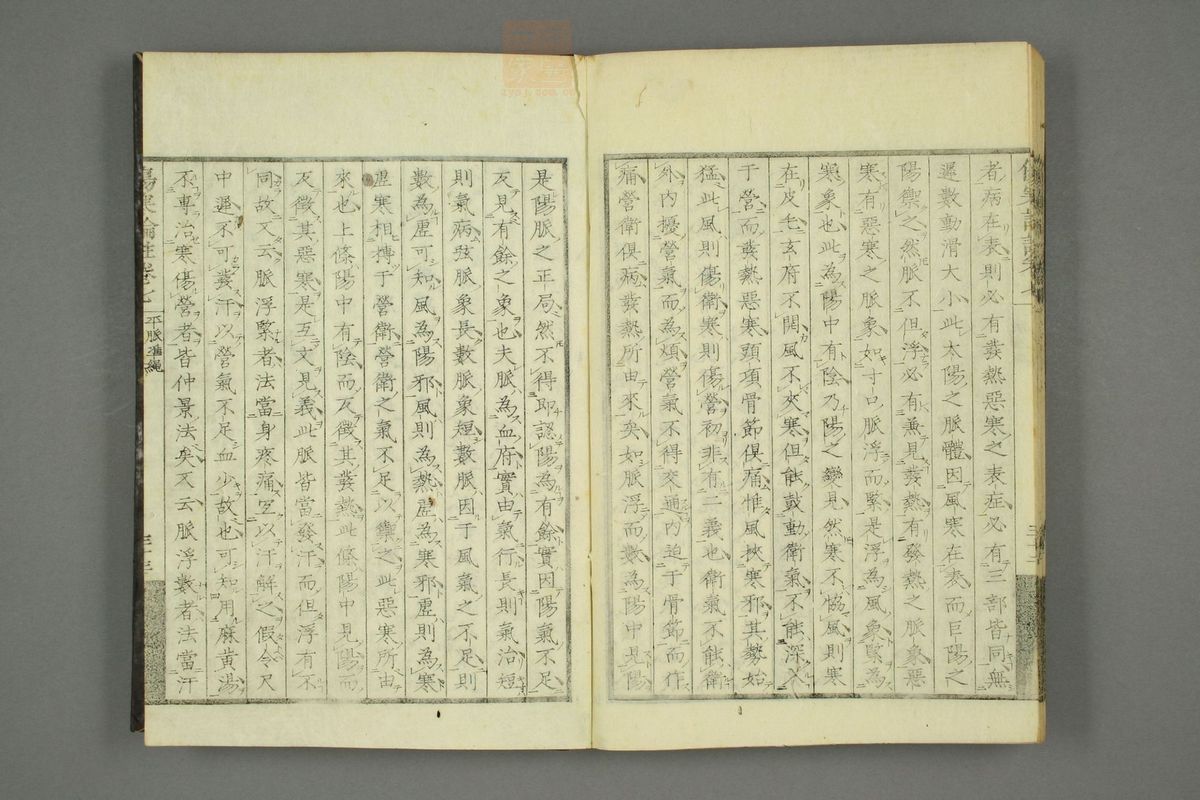 者病在表則必有發熱惡寒之表症必有三部皆同無
遲數動滑大小此太陽之脈體因風寒在表而巨陽之
陽禦之然脈不但浮必有兼見發熱有發熱之脈象惡
寒有惡寒之脈象如寸口脈浮而緊是浮為風象緊為
寒象也此為陽中有陰乃陽之變見然寒不恊風則寒
在皮毛玄府不開風不夾寒但能鼓動衛氣不能深入
于營而發熱惡寒頭項骨節俱痛惟風挾寒邪其勢始
猛此風則傷衛寒則傷營初非有二義也衛氣不能衛
外內擾營氣而為煩營氣不得交通內迫于骨節而作
痛營衛俱病發熱所由來矣如脈浮而數為陽中見陽
是陽脈之正局然不得即認陽為有餘實因陽氣不足
反見有餘之象也夫脈為血府實由氣行長則氣治短
則氣病弦脈象長數脈象短數脈因于風氣之不足則
數為虛可知風為陽邪風則為熱虛為寒邪虛則為寒
虛寒相搏于營衛營衛之氣不足以禦之此惡寒所由
來也上條陽中有陰而反徵其發熱此條陽中見陽而
反徵其惡寒是互文見義此脈皆當發汗而但浮有不
同故又云脈浮緊者法當身疼痛宜以汗解之假令尺
中遲不可發汗以營氣不足血少故也可知用麻黃湯
不專治寒傷營者皆仲景法矣又云脈浮數者法當汗
傷寒論註卷之一 平脈準繩